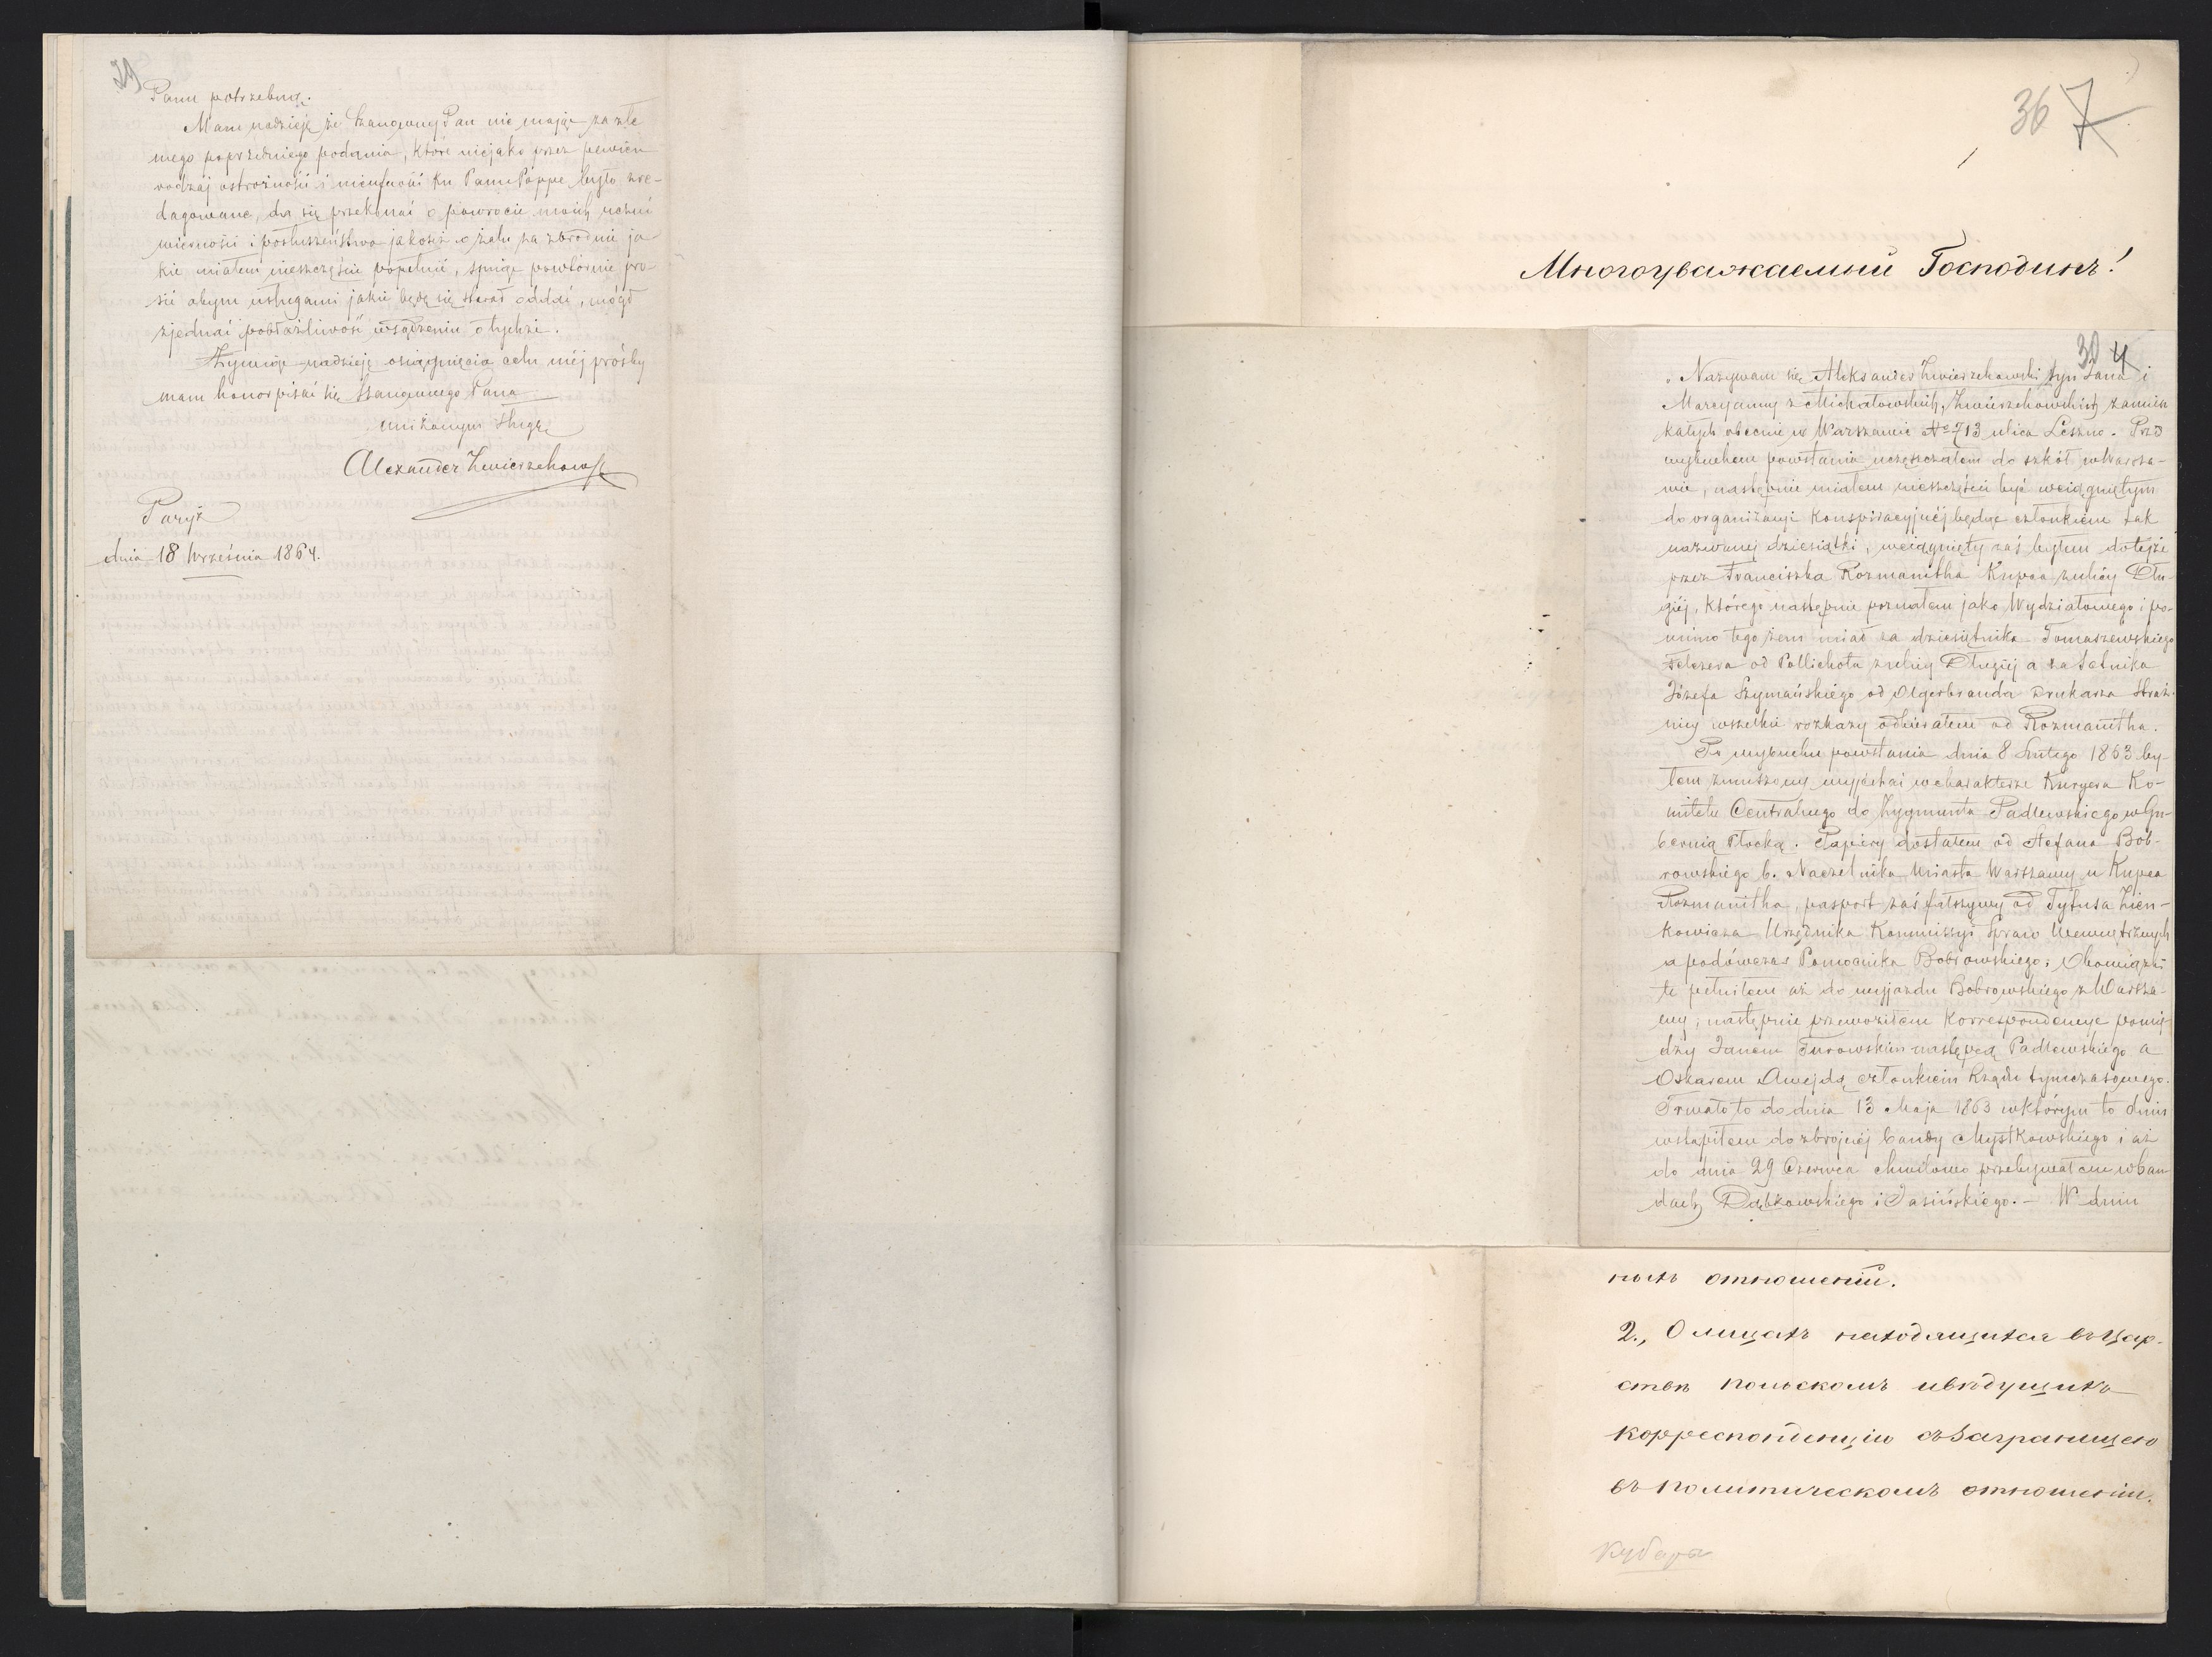 29
Panu potrzebną.
Mam nadzieję że Szanowny Pan nie mając za złe
mego poprzedniego podania, które niejako przez pewien
rodzaj ostrożności i nieufności ku Panu Poppe było zre-
dagowane, da się przekonać o powrocie moich uczuć
wierności i posłuszeństwa jakoteż o żalu za zbrodnie ja-
kie miałem nieszczęście popełnić, śmię powtórnie pro-
sić abym usługami jakie będę się starał oddać, mógł
zjednać pobłażliwość w sądzeniu o tychże.
Żywiąc nadzieję osiągnięcia celu méj prośby
mam honor pisać się Szanownego Pana
uniżonym sługą
Alexander Zwierzchowski
Paryż
dnia 18 Września 1864.
36 7
Многоуважаемый Господинъ!
30 4
Nazywam się Aleksander Zwierzchowski syn Jana i
Maryanny z Michałowskich, Zwierzchowskich zamiesz
kałych obecnie w Warszawie No 713 ulica Leszno. Przed
wybuchem powstania uczęszczałem do szkół w Warsza-
wie, następnie miałem nieszczęście być wciągniętym
do organizacyi konspiracyjnéj będąc członkiem tak
nazwanéj dziesiątki, wciągnięty zaś byłem do tejże
przez Franciszka Rozmanitha Kupca z ulicy Dłu-
giéj, którego następnie poznałem jako Wydziałowego i po-
mimo tego żem miał za dziesiętnika Tomaszewskiego
Felczera od Pollichota z ulicy Długiéj a za setnika
Józefa Szymańskiego od Olgerbranda drukarza
wszelkie rozkazy odbierałem od Rozmanitha.
Po wybuchu powstania dnia 8 Lutego 1863 by-
łem zmuszony wyjechać w charakterze Kuryera Ko-
mitetu Centralnego do Zygmunta Padlewskiego w Gu-
bernią Płocką. Papiery dostałem od Stefana Bob-
rowskiego b. Naczelnika Miasta Warszawy u Kupca
Rozmanitha, pasport zaś fałszywy od Tytusa Zien-
kowicza Urzędnika Kommissyi Spraw Wewnętrznych
a podówczas Pomocnika Bobrowskiego; Obowiązki
te pełniłem aż do wyjazdu Bobrowskiego z Warsza-
wy, następnie przewoziłem korrespondencye pomię-
dzy Janem Turowskim następcą Padlewskiego a
Oskarem Awejdą członkiem Rządu tymczasowego.
Trwało to do dnia 13 Maja 1863 w którym to dniu
wstąpiłem do zbrojnéj bandy Mystkowskiego i aż
do dnia 29 Czerwca chwilowo przebywałem w ban
dach Dąbkowskiego i Jasińskiego. — W dniu
ныхъ отношеній.
2., О лицахъ находящихся въ Цар-
ствѣ Польскомъ и ведущихъ
корреспонденцію съ заграницею
въ политическомъ отношеніи.